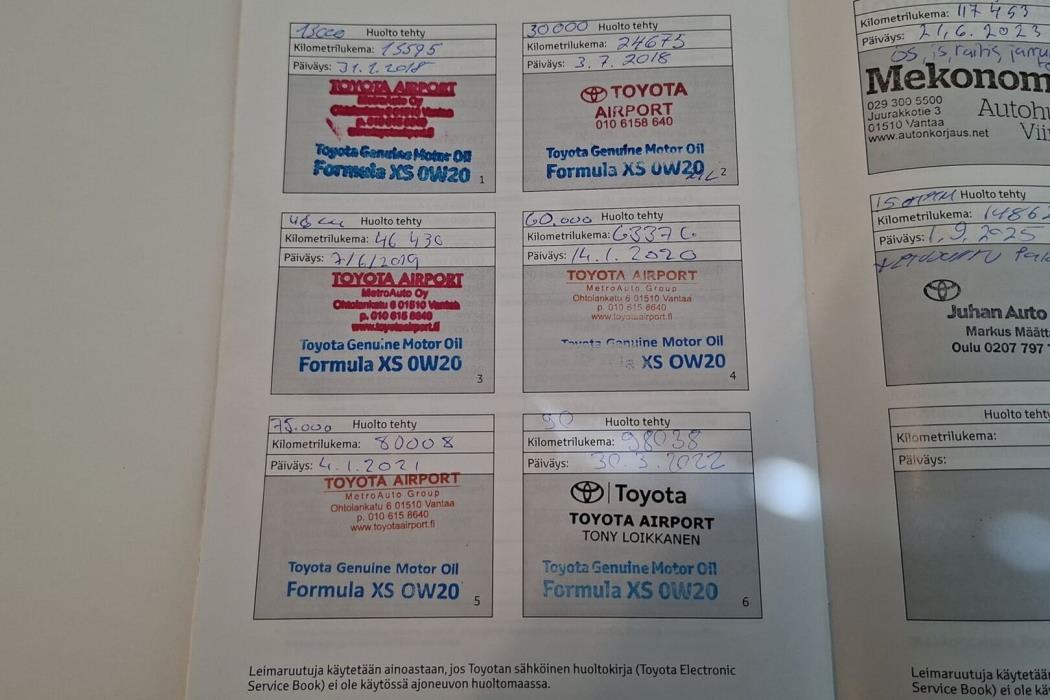 15000 Huolto tehty
Kilometrilukema: 15595
Päiväys: 31.1.2018
TOYOTA AIRPORT
MetroAuto Oy
Toyota Genuine Motor Oil
Formula XS 0W20
1
30000 Huolto tehty
Kilometrilukema: 24675
Päiväys: 3.7.2018
TOYOTA
AIRPORT
010 6158 640
Toyota Genuine Motor Oil
Formula XS 0W20
2
Huolto tehty
Kilometrilukema: 46 430
Päiväys: 7/6/2019
TOYOTA AIRPORT
MetroAuto Oy
Ohtolankatu 6 01510 Vantaa
p. 010 615 8640
www.toyotaairport.fi
Toyota Genuine Motor Oil
Formula XS 0W20
3
60.000 Huolto tehty
Kilometrilukema: 63376
Päiväys: 14.1.2020
TOYOTA AIRPORT
MetroAuto Group
Ohtolankatu 6 01510 Vantaa
p. 010 615 8640
www.toyotaairport.fi
Toyota Genuine Motor Oil
XS 0W20
4
75.000 Huolto tehty
Kilometrilukema: 80008
Päiväys: 4.1.2021
TOYOTA AIRPORT
MetroAuto Group
Ohtolankatu 6 01510 Vantaa
p. 010 615 8640
www.toyotaairport.fi
Toyota Genuine Motor Oil
Formula XS 0W20
5
90 Huolto tehty
Kilometrilukema: 98038
Päiväys: 30.3.2022
Toyota
TOYOTA AIRPORT
TONY LOIKKANEN
Toyota Genuine Motor Oil
Formula XS 0W20
6
Leimaruutuja käytetään ainoastaan, jos Toyotan sähköinen huoltokirja (Toyota Electronic
Service Book) ei ole käytössä ajoneuvon huoltomaassa.
Kilometrilukema: 117 453
Päiväys: 21.6.2023
ös, is, raitis, jarru
Mekonom
029 300 5500
Juurakkotie 3
01510 Vantaa
www.autonkorjaus.net
Autohu
Viin
Huolto tehty
Kilometrilukema: 14862
Päiväys: 1.9.2025
Juhan Auto
Markus Määtt
Oulu 0207 797
Huolto tehty
Kilometrilukema:
Päiväys:
Leimaruutuja käytetään
Service Book) ei ole käy